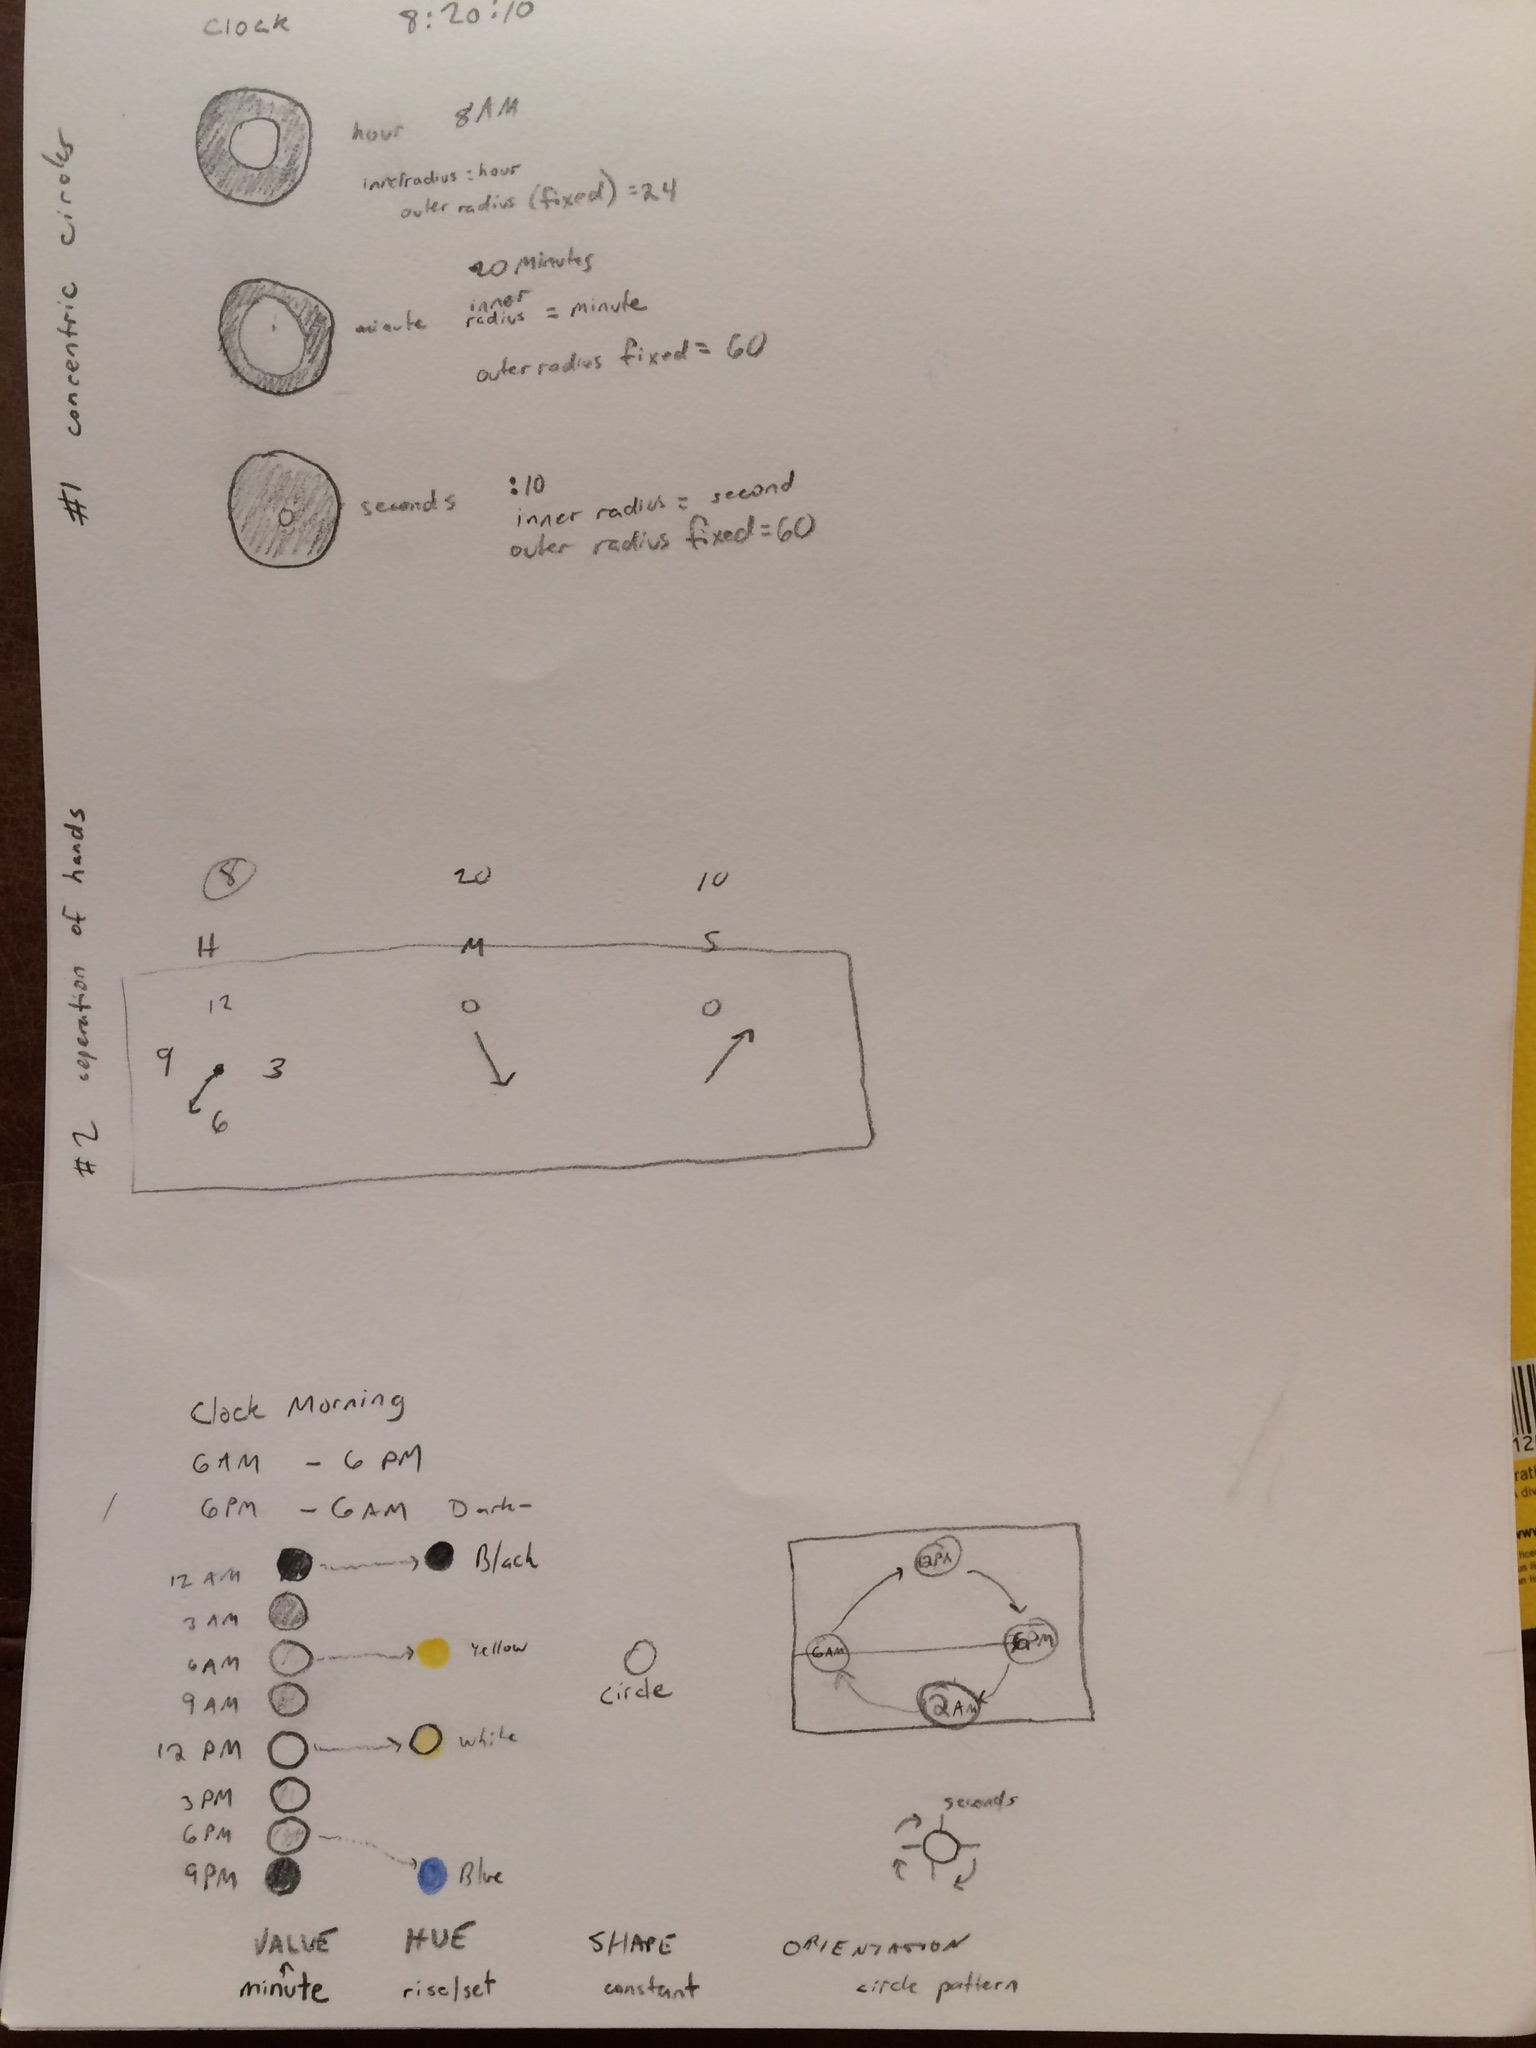 Clock 8:20:10
#1 concentric circles
hour 8AM
inner radius = hour
outer radius (fixed) = 24
20 Minutes
minute inner radius = minute
outer radius fixed = 60
seconds :10
inner radius = second
outer radius fixed = 60
#2 seperation of hands
8 20 10
H M S
12 0 0
9 3
6
Clock Morning
6AM - 6 PM
6PM - 6AM Dark-
12 AM Black
3 AM
6AM Yellow
9 AM
12 PM White
3 PM
6PM
9PM Blue
circle
12PM
6AM 6PM
12AM
seconds
VALUE HUE SHAPE ORIENTATION
minute rise/set constant circle pattern
12
www